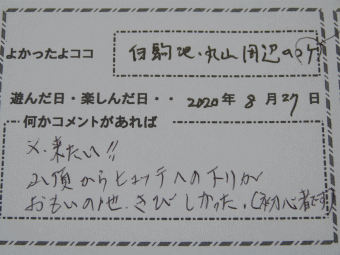 よかったよココ 白駒池・丸山周辺のコケ
遊んだ日・楽しんだ日・・ 2020年 8月 27日
何かコメントがあれば
又、来たい!!
山頂からヒュッテへの下りが
おもいの他、きびしかった。(初心者です)